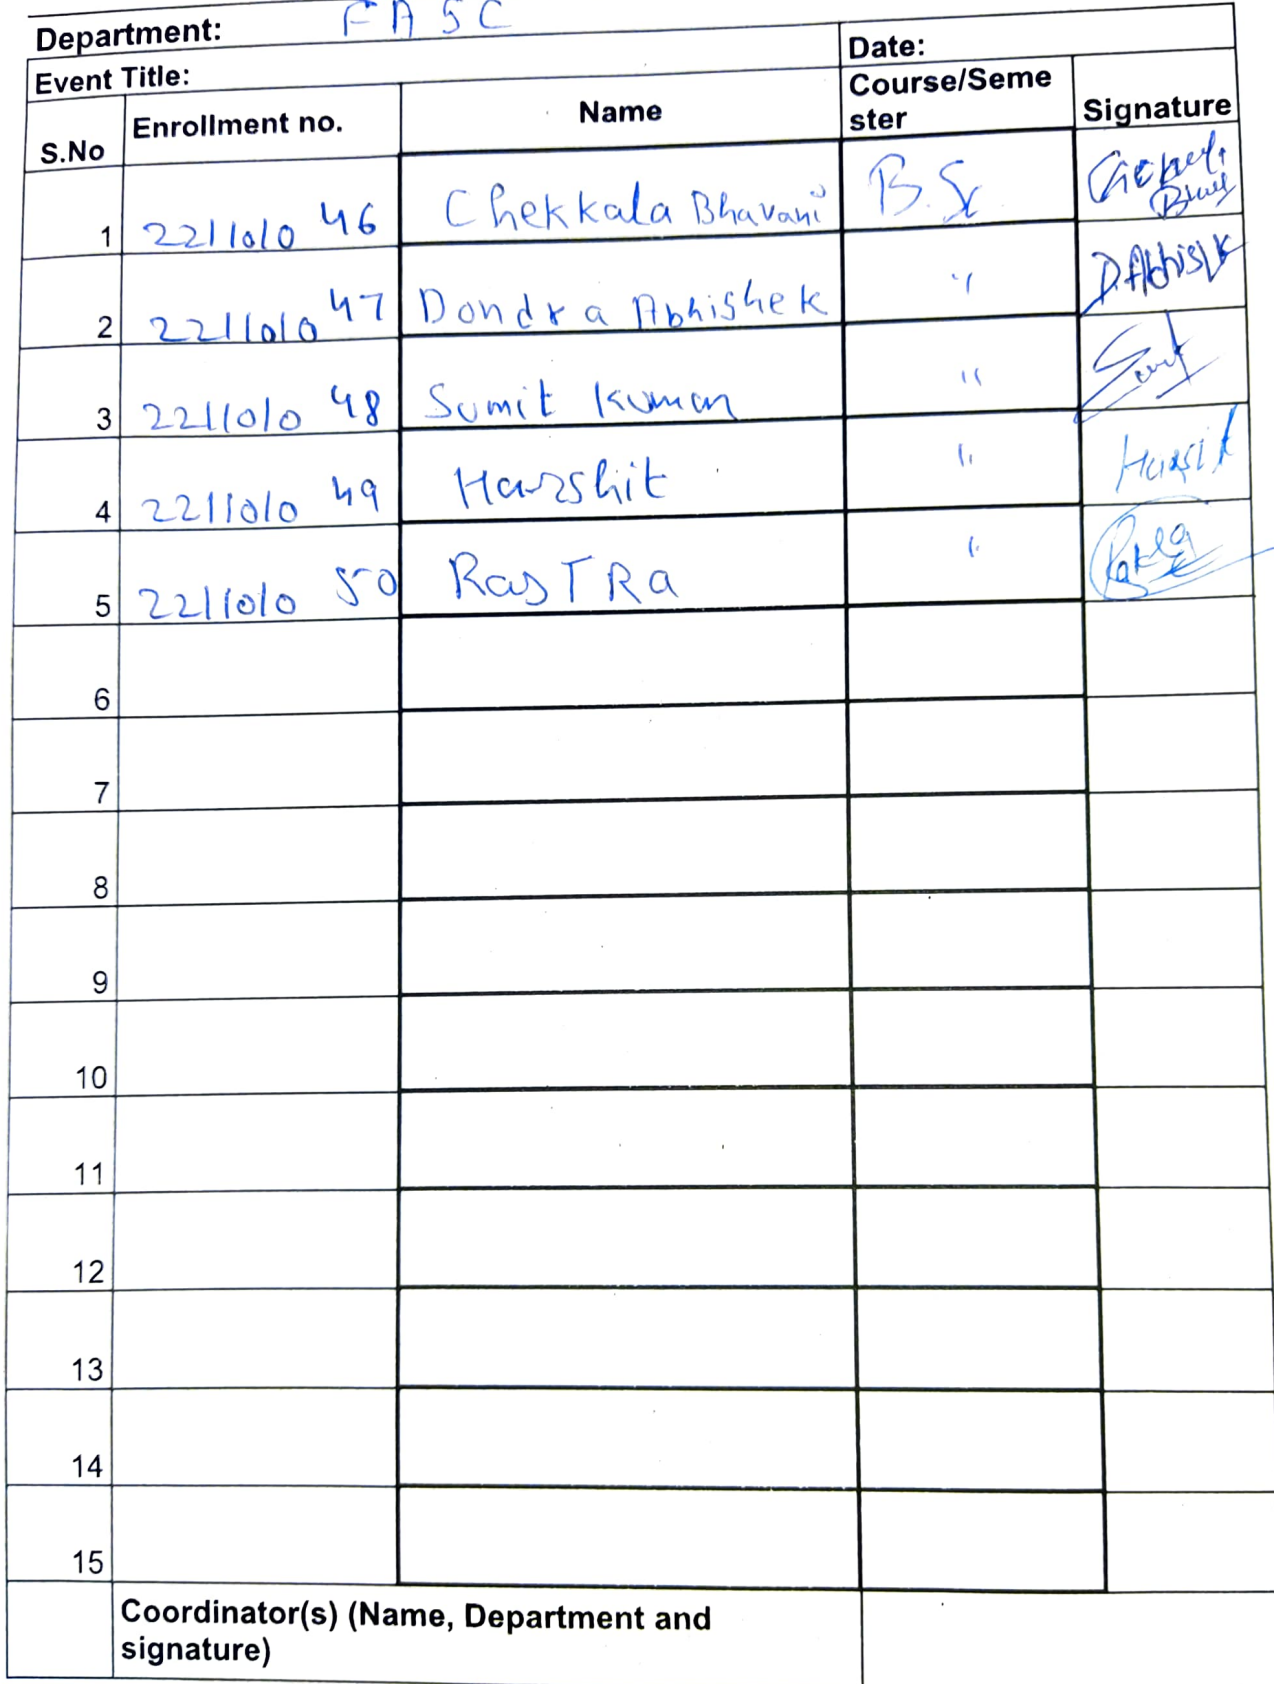 Department: FASC
Event Title: Date:
S.No Enrollment no. Name Course/Seme
ster Signature
1 22110/0 46 Chekkala Bhavani B.Sc
2 22110/0 47 Dondra Abhishek " D.Abhishek
3 22110/0 48 Sumit Kumar "
4 22110/0 49 Harshit " Harsit
5 22110/0 50 RasTRa "
6
7
8
9
10
11
12
13
14
15
Coordinator(s) (Name, Department and
signature)